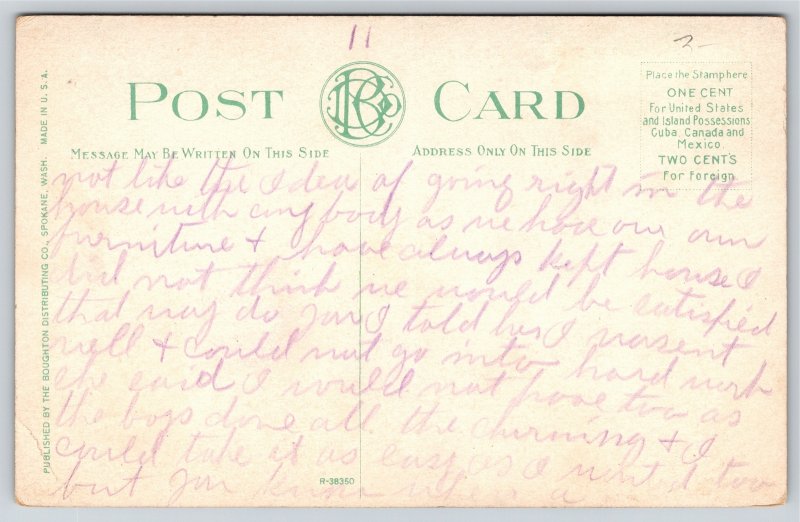 11
2-
POST CARD
BDCo
Place the Stamp here
ONE CENT
For United States
and Island Possessions
Cuba, Canada and
Mexico.
TWO CENTS
For Foreign.
MESSAGE MAY BE WRITTEN ON THIS SIDE
ADDRESS ONLY ON THIS SIDE
PUBLISHED BY THE BOUGHTON DISTRIBUTING CO., SPOKANE, WASH. MADE IN U.S.A.
not like the Idea of going right in the
house with anybody as we have our own
furniture + have always kept house I
did not think we would be satisfied
that way do you I told her I wasent
well + could not go into hard work
she said I would not have two as
the boys done all the churning + I
could take it as easy as I wanted two
but you know when a
R-38350